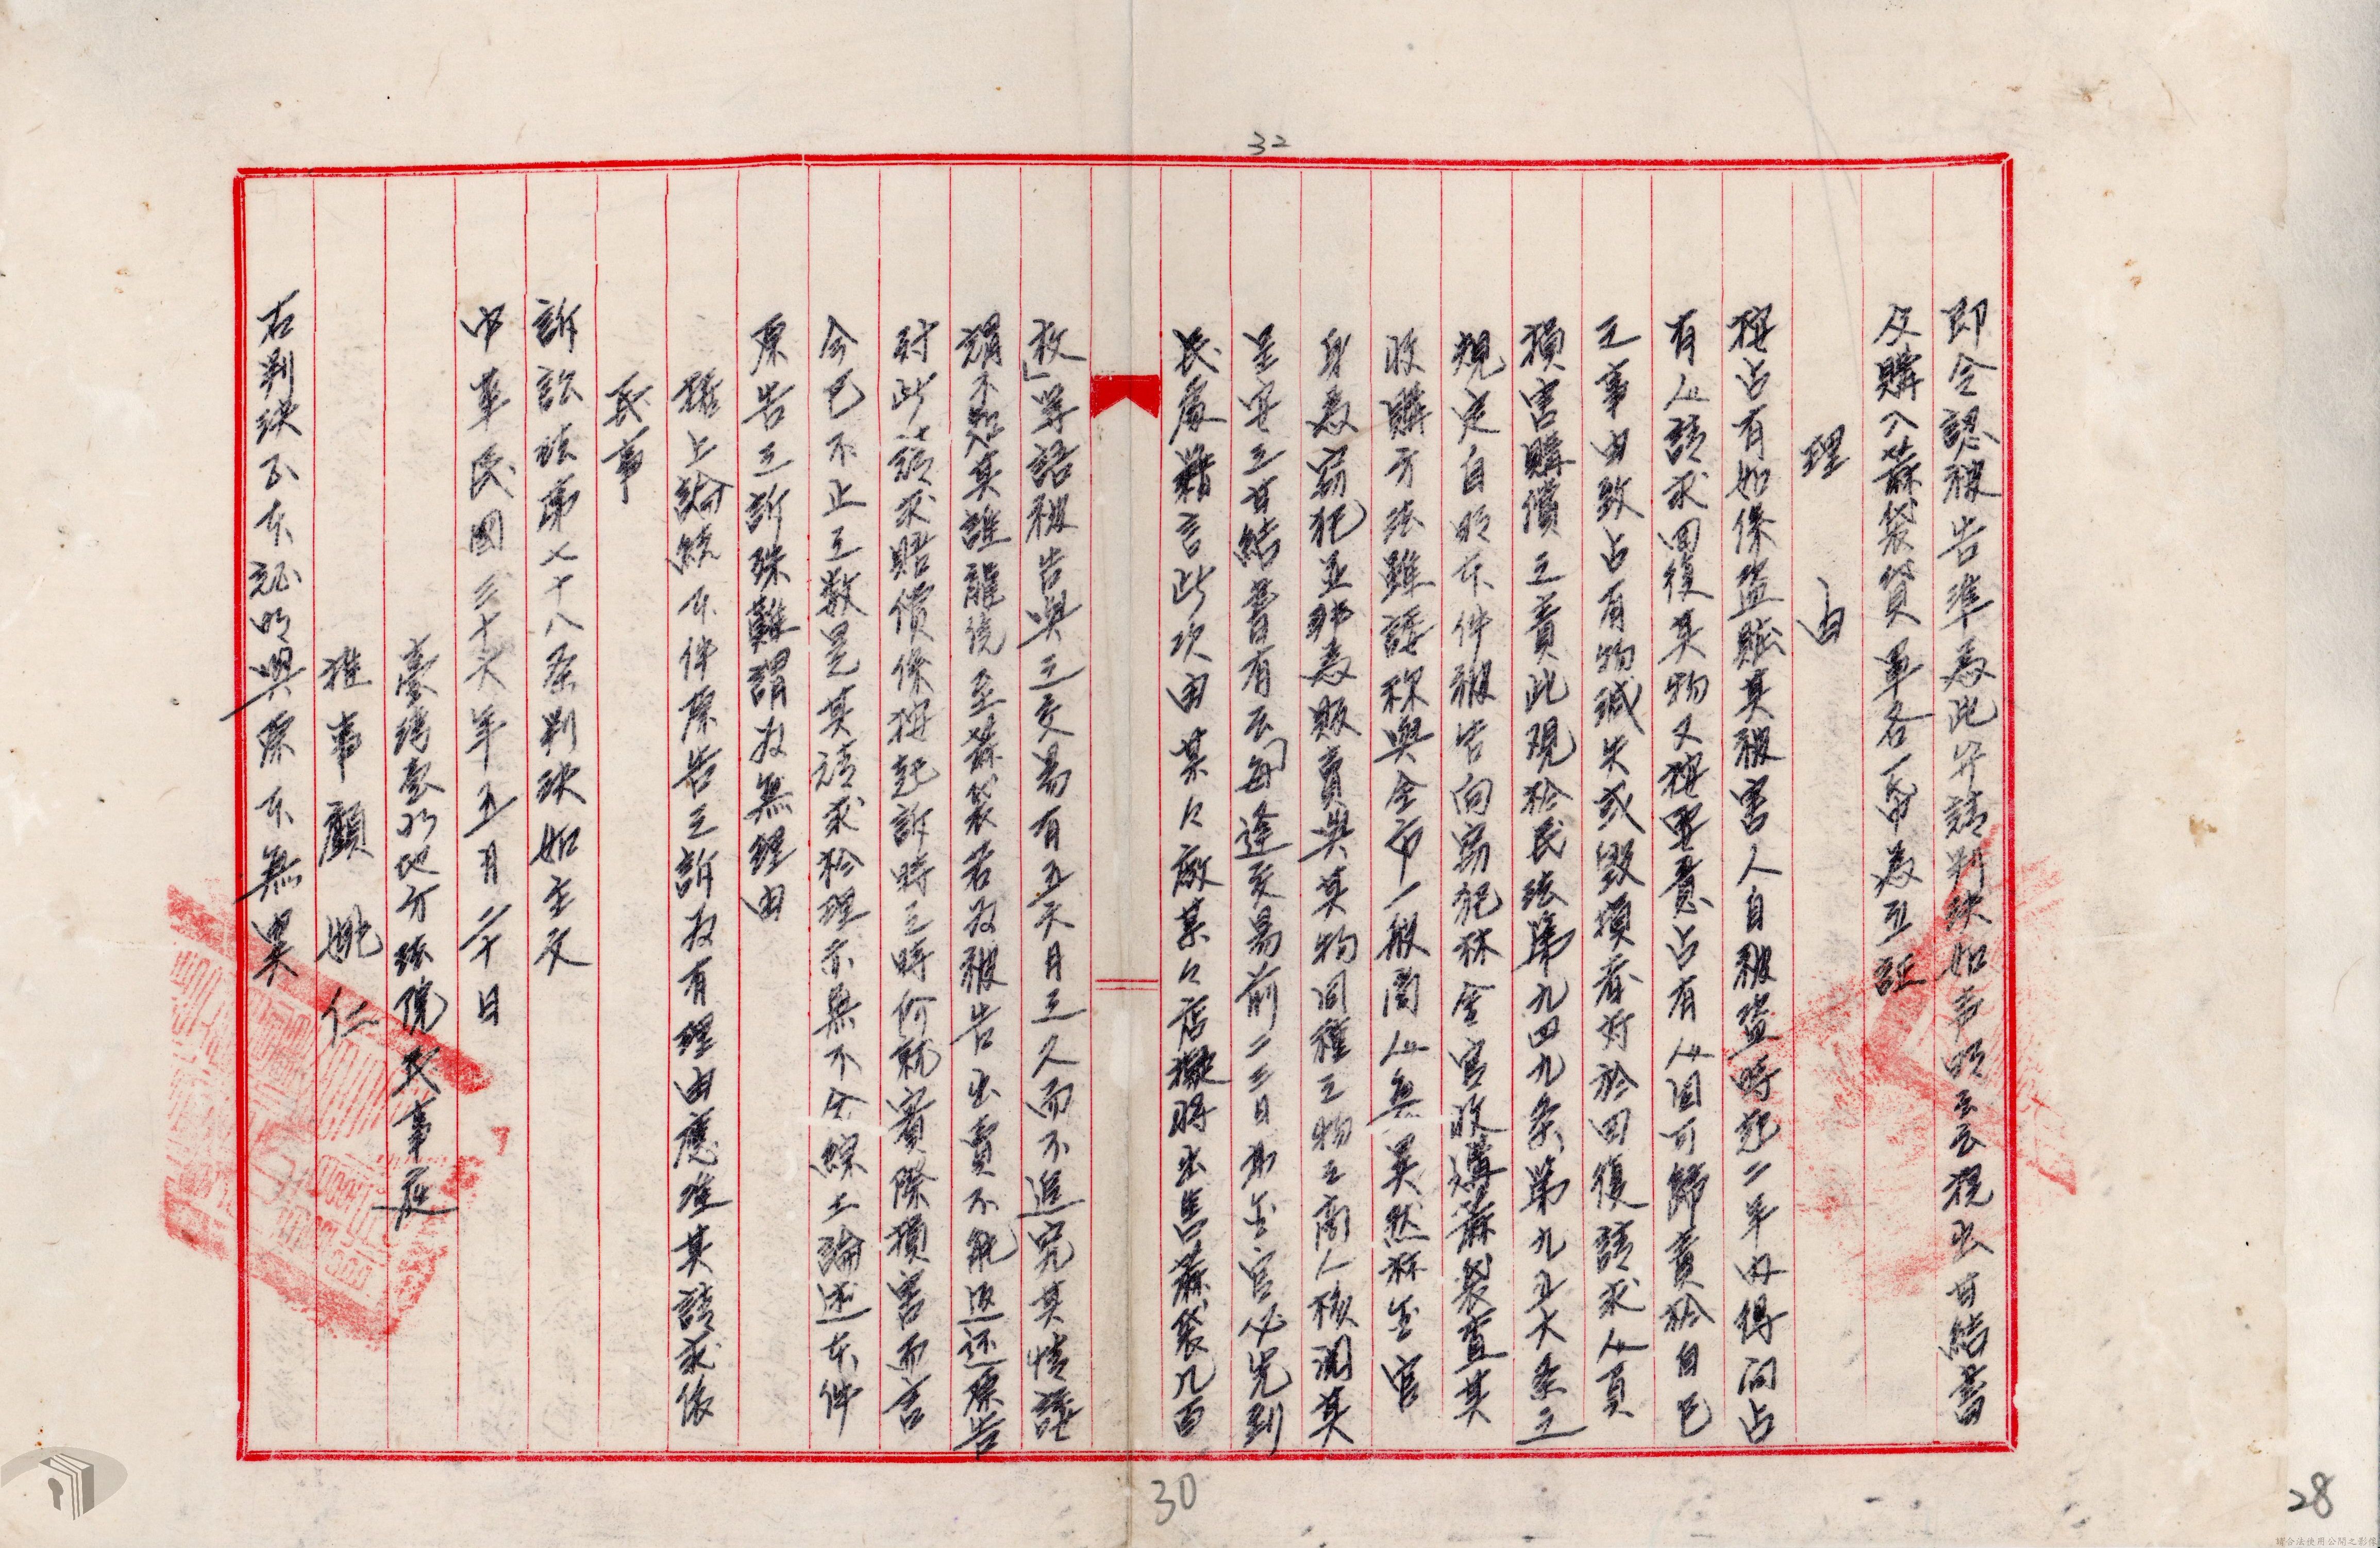 32
即令認被告準為此斥請判決如事明云云提出甘結書
及購入蔴袋貨單各一帋為立証
理　由
按占有如係盜贓其被害人自被盜時起二年內得向占
有人請求回復其物又按惡意占有人因可歸責於自己
之事由致占有物滅失或毀損者對於回復請求人負
損害購償之責此觀於民法第九四九条第九五六条之
規定自明本件被告向竊犯林金官收購蔴袋查其
收購方法雖諉稱與全市一般商人無異然林金官
身為竊犯並非為販賣與其物同種之物之商人核閱其
呈案之甘結書有云「每逢交易前二三日林金官必先到
民處藉言此次由某々廠某々店擬將出售蔴袋几百
枚」等語被告與之交易有五六月之久而不追究其情諉
謂不知其誰能信至蔴袋若為被告出賣不能返还原告
對此請求賠償係按起訴時之時價就實際損害而言
今已不止之數是其請求於理亦無不合綜上論述本件
原告之訴殊難謂為無理由
據上論結本件原告之訴為有理由應准其請求依
民事
訴訟法第七十八条判決如主文
中華民國三十六年五月二十日
臺灣臺北地方法院民事庭
推事顏　姚　仁
右判決正本証明與原本無異
30
28
請合法使用公開之影像